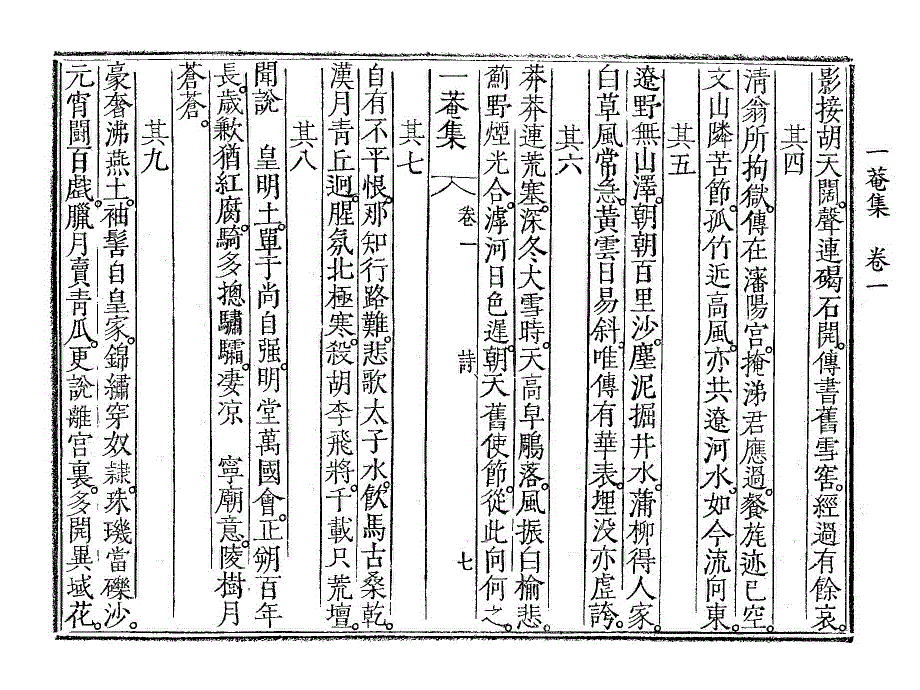 一菴集　卷一
影接胡天闊。聲連碣石開。傳書舊雪窖。經過有餘哀。
其四
淸翁所拘獄。傳在瀋陽宮。掩涕君應過。餐旄迹已空。
文山隣苦節。孤竹近高風。亦共遼河水。如今流向東。
其五
遼野無山澤。朝朝百里沙。塵泥掘井水。蒲柳得人家。
白草風常急。黃雲日易斜。唯傳有華表。埋没亦虛誇。
其六
莽莽連荒塞。深冬大雪時。天高皁鵰落。風振白榆悲。
薊野煙光合。滹河日色遲。朝天舊使節。從此向何之。
一菴集　卷一　詩　七
其七
自有不平恨。那知行路難。悲歌太子水。飮馬古桑乾。
漢月靑丘迥。腥氛北極寒。殺胡李飛將。千載只荒壇。
其八
聞說　皇明土。單于尚自强。明堂萬國會。正朔百年
長。歲歉猶紅腐。騎多摠驌驦。凄凉　寧廟意。陵樹月
蒼蒼。
其九
豪奢沸燕土。袖髻自皇家。錦繡穿奴隷。珠璣當礫沙。
元宵鬪百戲。臘月賣靑瓜。更說離宮裏。多開異域花。